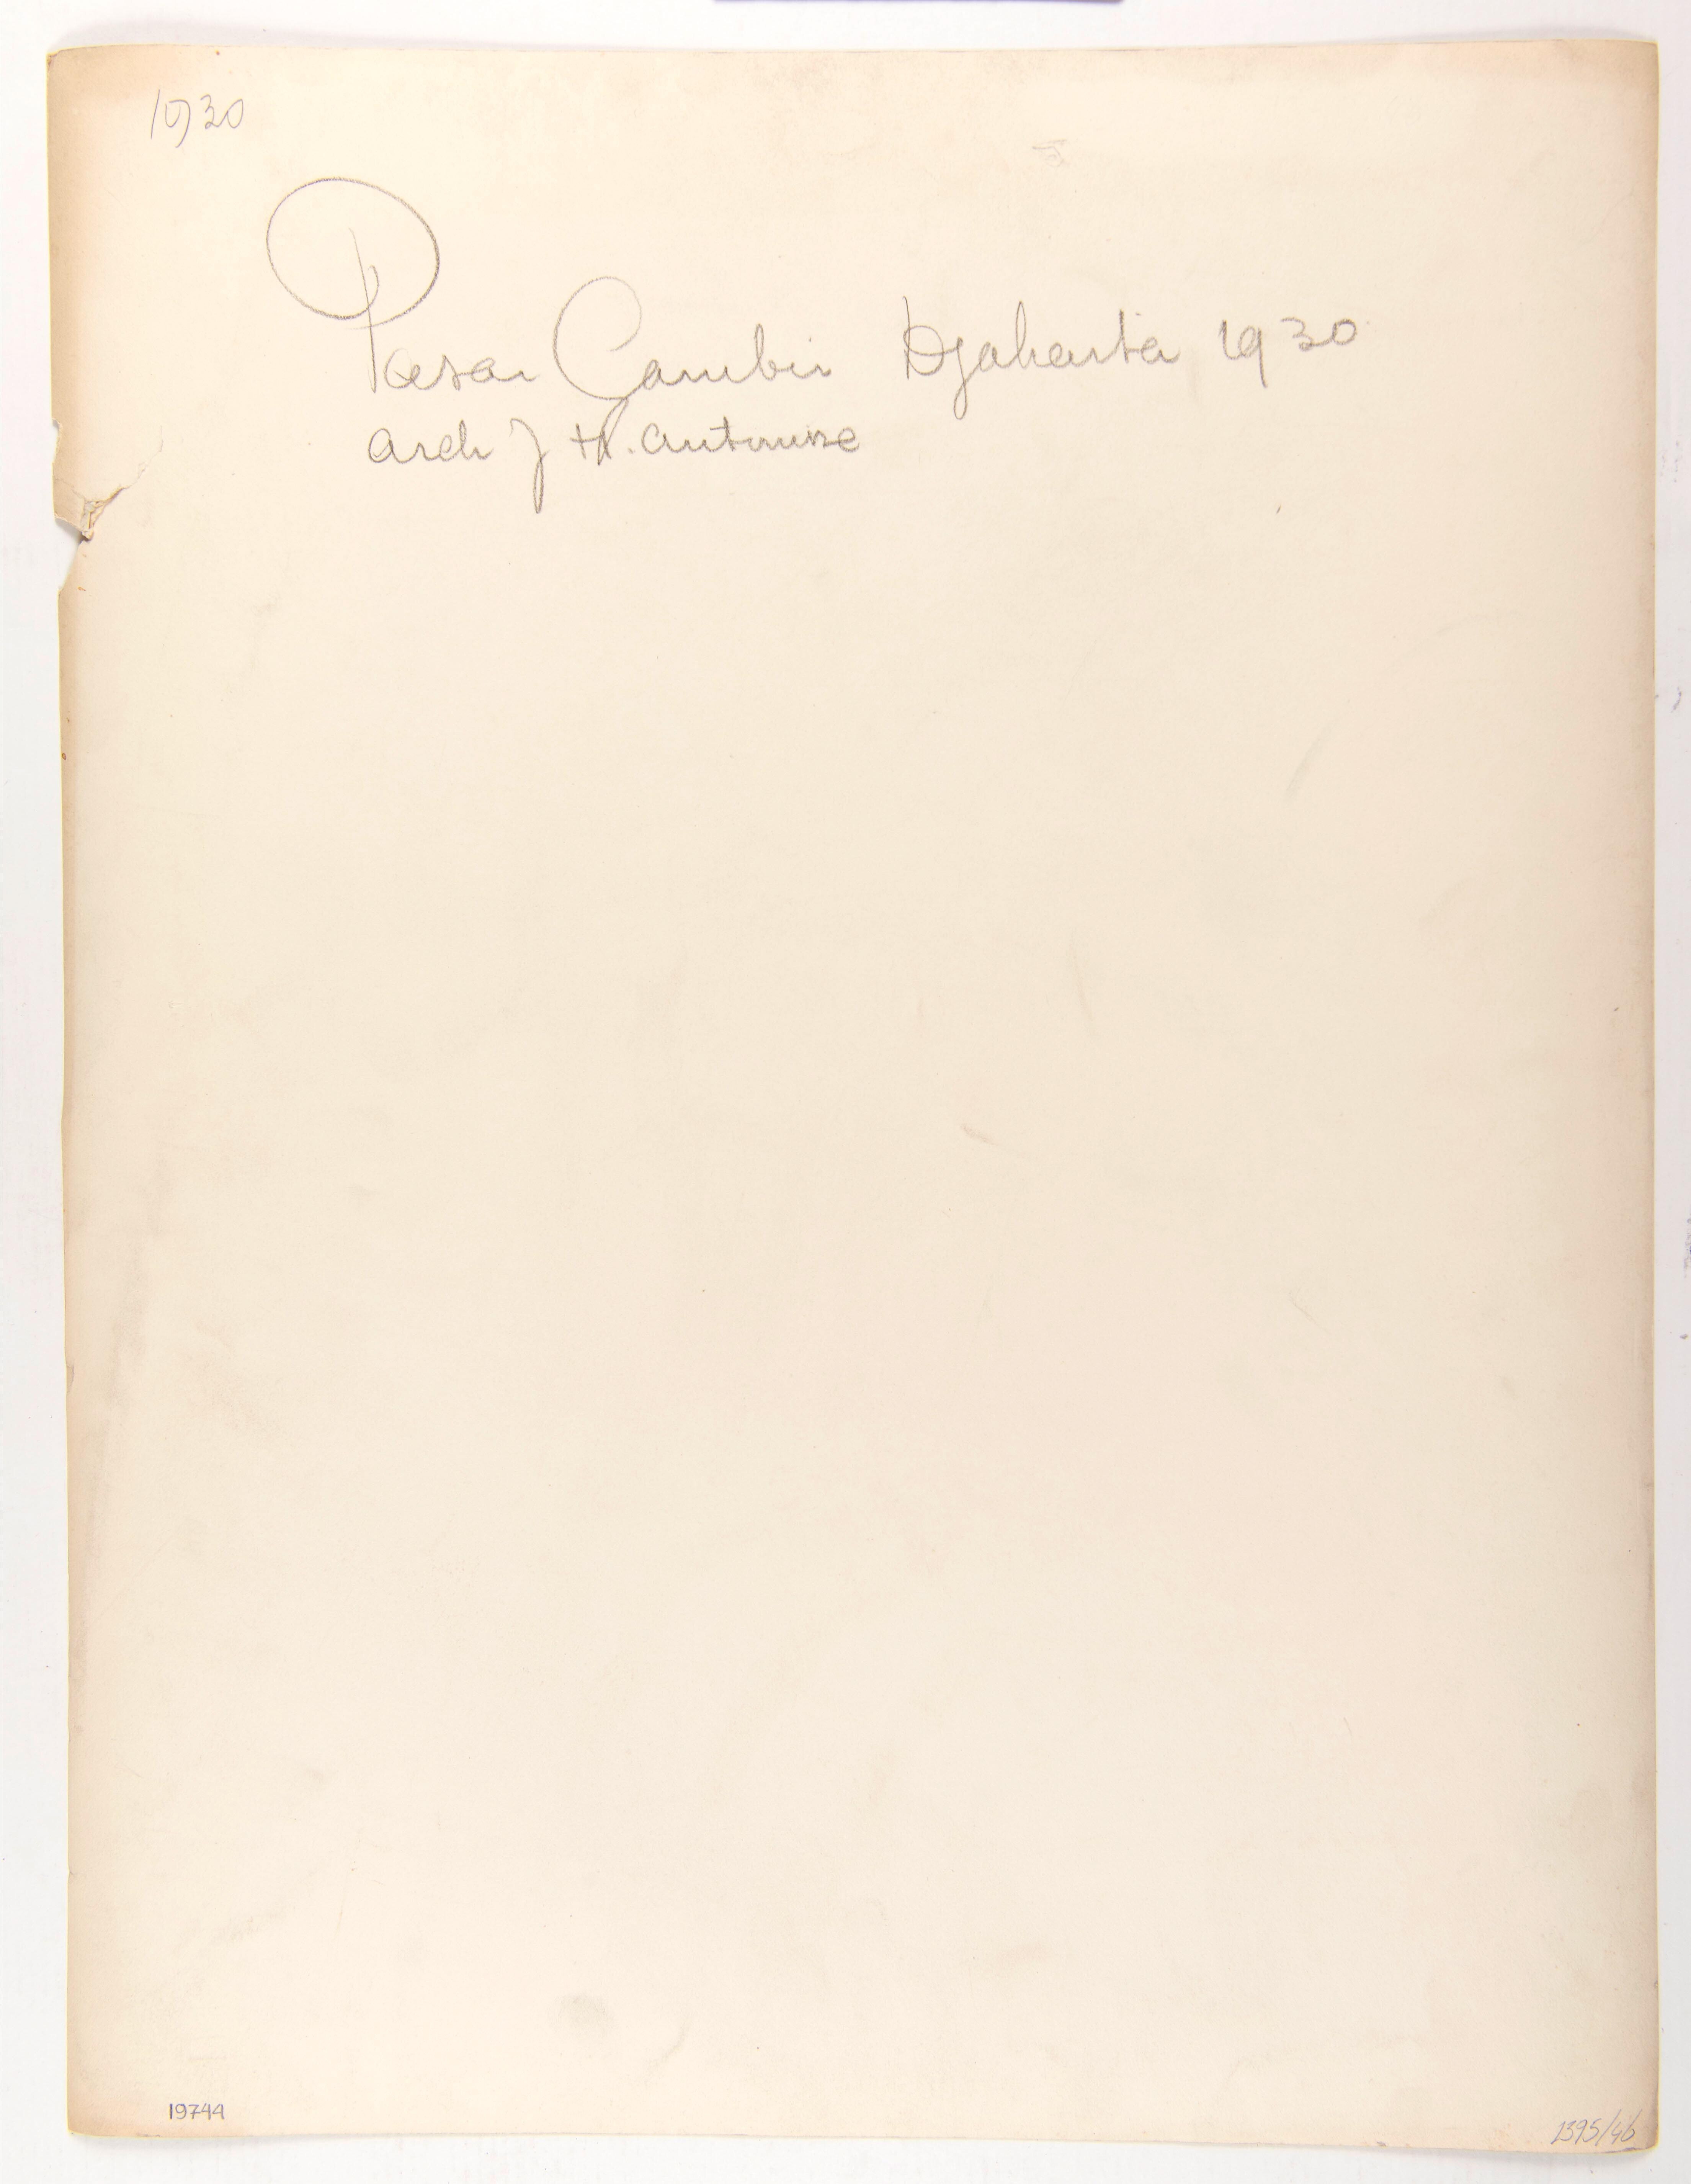 1930
Pasar Gambir Djakarta 1930
Arch J H. Antonisse
19744
1395/46